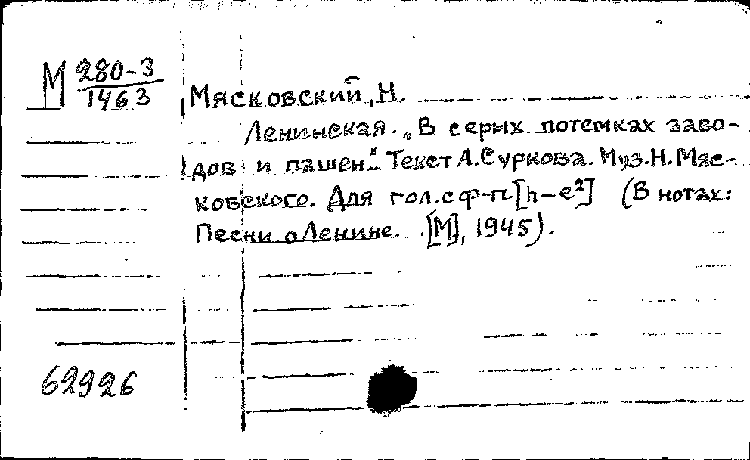 М 280-3
1463
Мясковский, Н.
Ленинская. „В серых потемках заво-
дов и пашен." Текст А.Суркова. Муз.Н.Мяс-
ковского. Для гол.с ф-п.[h–e²] (В нотах:
Песни о Ленине. [М], 1945).
62926